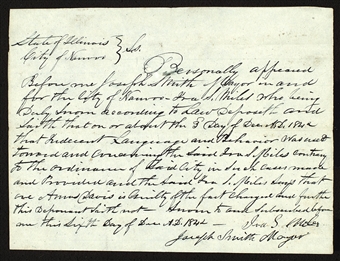 State of Illinois } S.s.
City of Nauvoo
Personally appeared
Before me Joseph Smith Mayor in and
for the City of Nauvoo Ira S. Miles who being
Duly Sworn according to Law Deposeth and
Saith that on or about the 3d Day of Decr AD, 1842
that Language and Behavior Was used
toward and Concerning the Said Ira S Miles contrary
to the Ordinance of Said City in Such cases made
and Provided and the Said Ira S. Miles Says that
one Amos Davis is Guilty of the fact Charged and further
this deponent Saith not Sworn to and Subscribed before
me this Sixth Day of Dec A.D. 1842 — Ira S. Miles
Joseph Smith Mayor